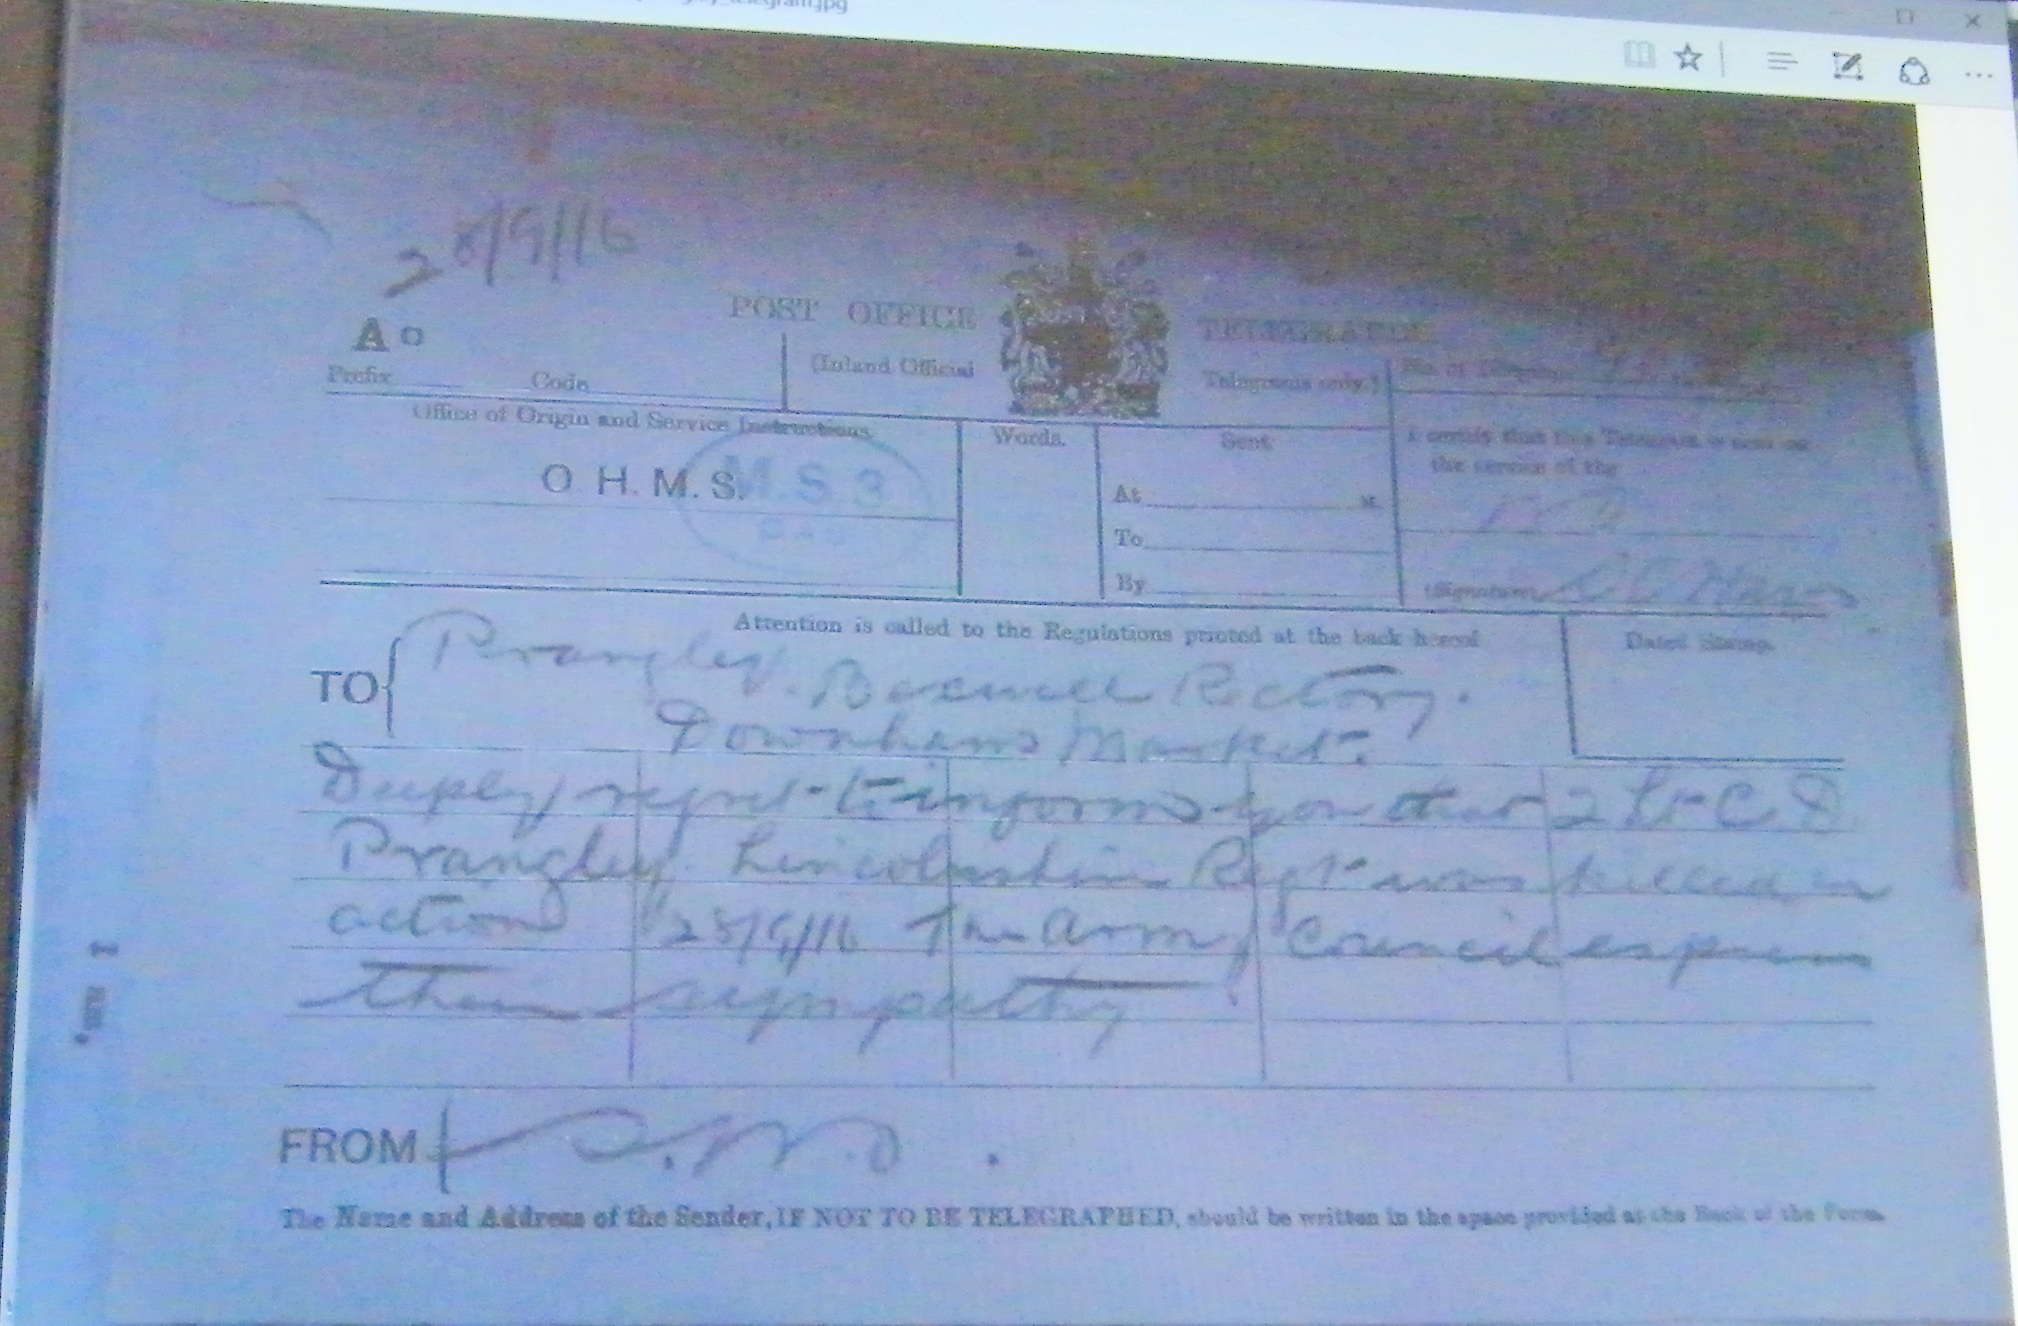 28/9/16
POST OFFICE TELEGRAPHS
A o
(Inland Official Telegrams only.)
Prefix Code
Office of Origin and Service Instructions.
Words.
Sent
I certify that this Telegram is sent on
the service of the
O H. M. S.
M. S 3
At M
To
By
(Signature)
Attention is called to the Regulations printed at the back hereof
Dated Stamp.
TO Prangley. Bexwell Rectory.
Downham Market.
Deeply regret to inform you that 2 Lt C D
Prangley Lincolnshire Regt was killed in
action 25/9/16 The Army Council express
their sympathy
FROM
The Name and Address of the Sender, IF NOT TO BE TELEGRAPHED, should be written in the space provided at the Back of the Form.